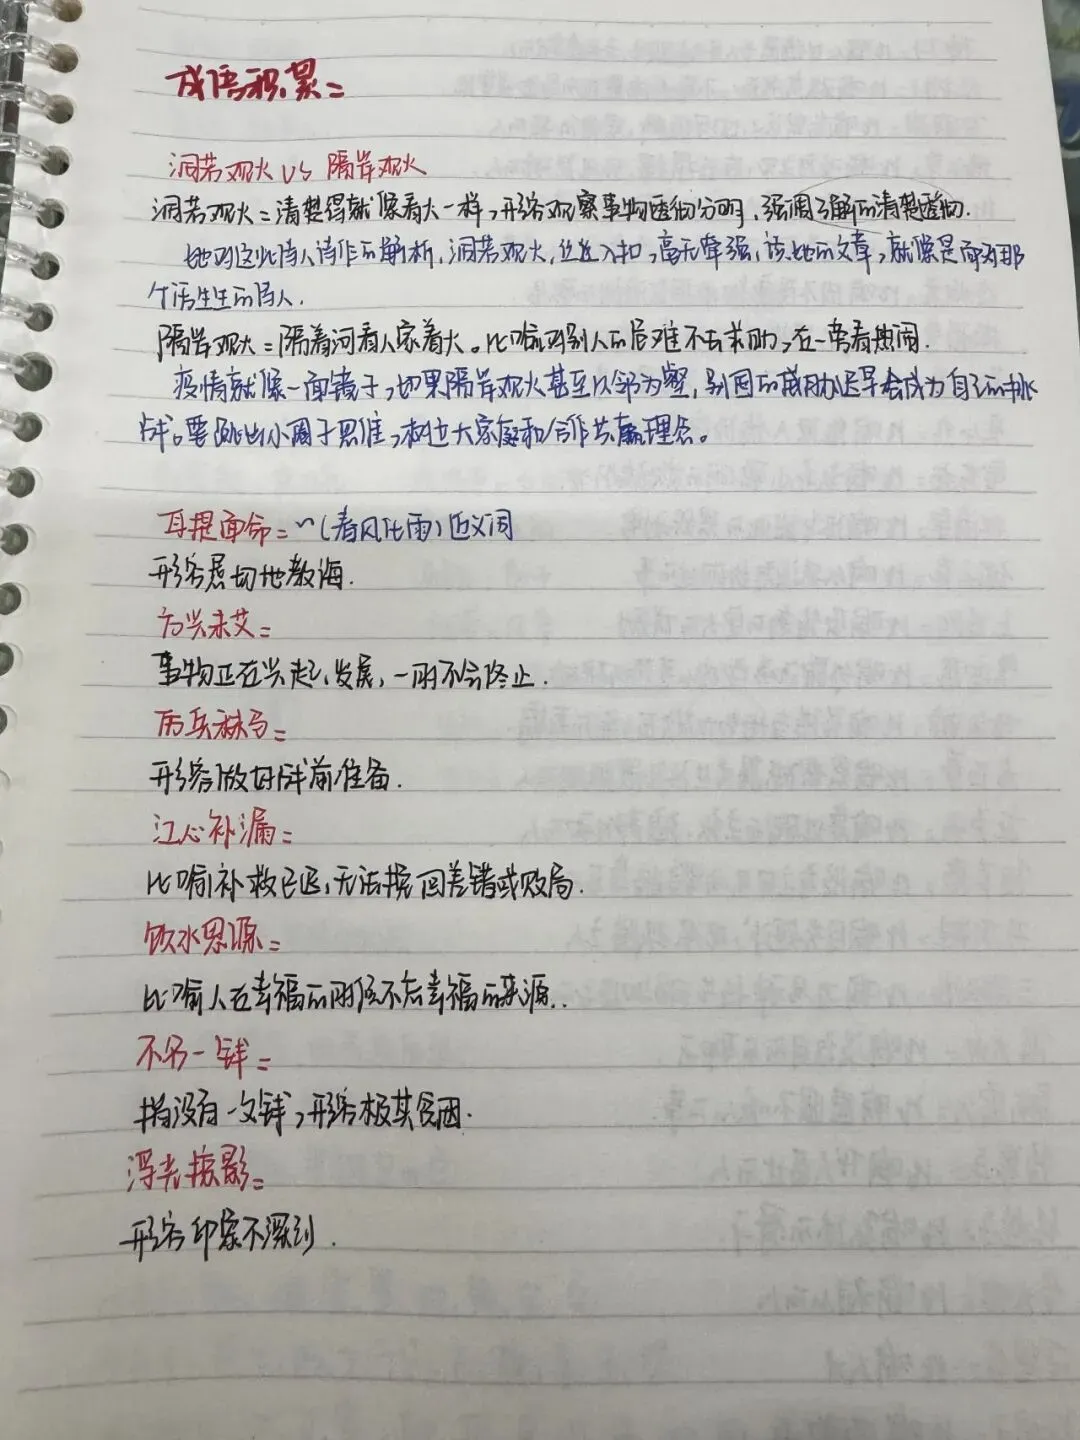 成语积累：
洞若观火 VS 隔岸观火
洞若观火：清楚得就像看火一样，形容观察事物透彻分明，强调了解的清楚透彻.
她对这些诗人诗作的解析，洞若观火，丝丝入扣，毫无牵强，读她的文章，就像是面对那
个活生生的诗人.
隔岸观火：隔着河看人家着火。比喻对别人的危难不去求助，在一旁看热闹.
疫情就像一面镜子，如果隔岸观火甚至以邻为壑，别国的威胁迟早会成为自己的挑
战。要跳出小圈子思维，树立大家庭和合作共赢理念。
耳提面命：~（春风化雨）近义词
形容恳切地教诲.
方兴未艾：
事物正在兴起、发展，一时不会终止.
厉兵秣马：
形容做好战前准备.
江心补漏：
比喻补救已迟，无法挽回差错或败局.
饮水思源：
比喻人在幸福的时候不忘幸福的来源..
不名一钱：
指没有一文钱，形容极其贫困.
浮光掠影：
形容印象不深刻.